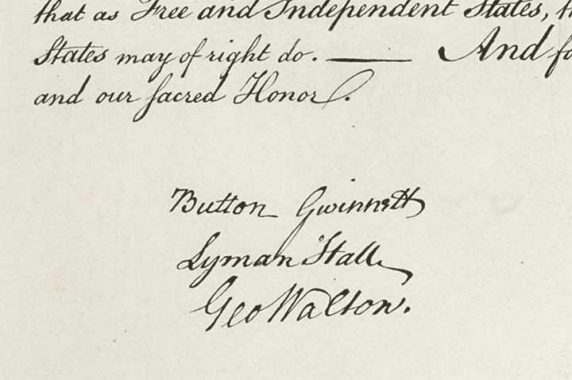 that as Free and Independent States,
States may of right do. —— And
and our sacred Honor.
Button Gwinnett
Lyman Hall
Geo Walton.